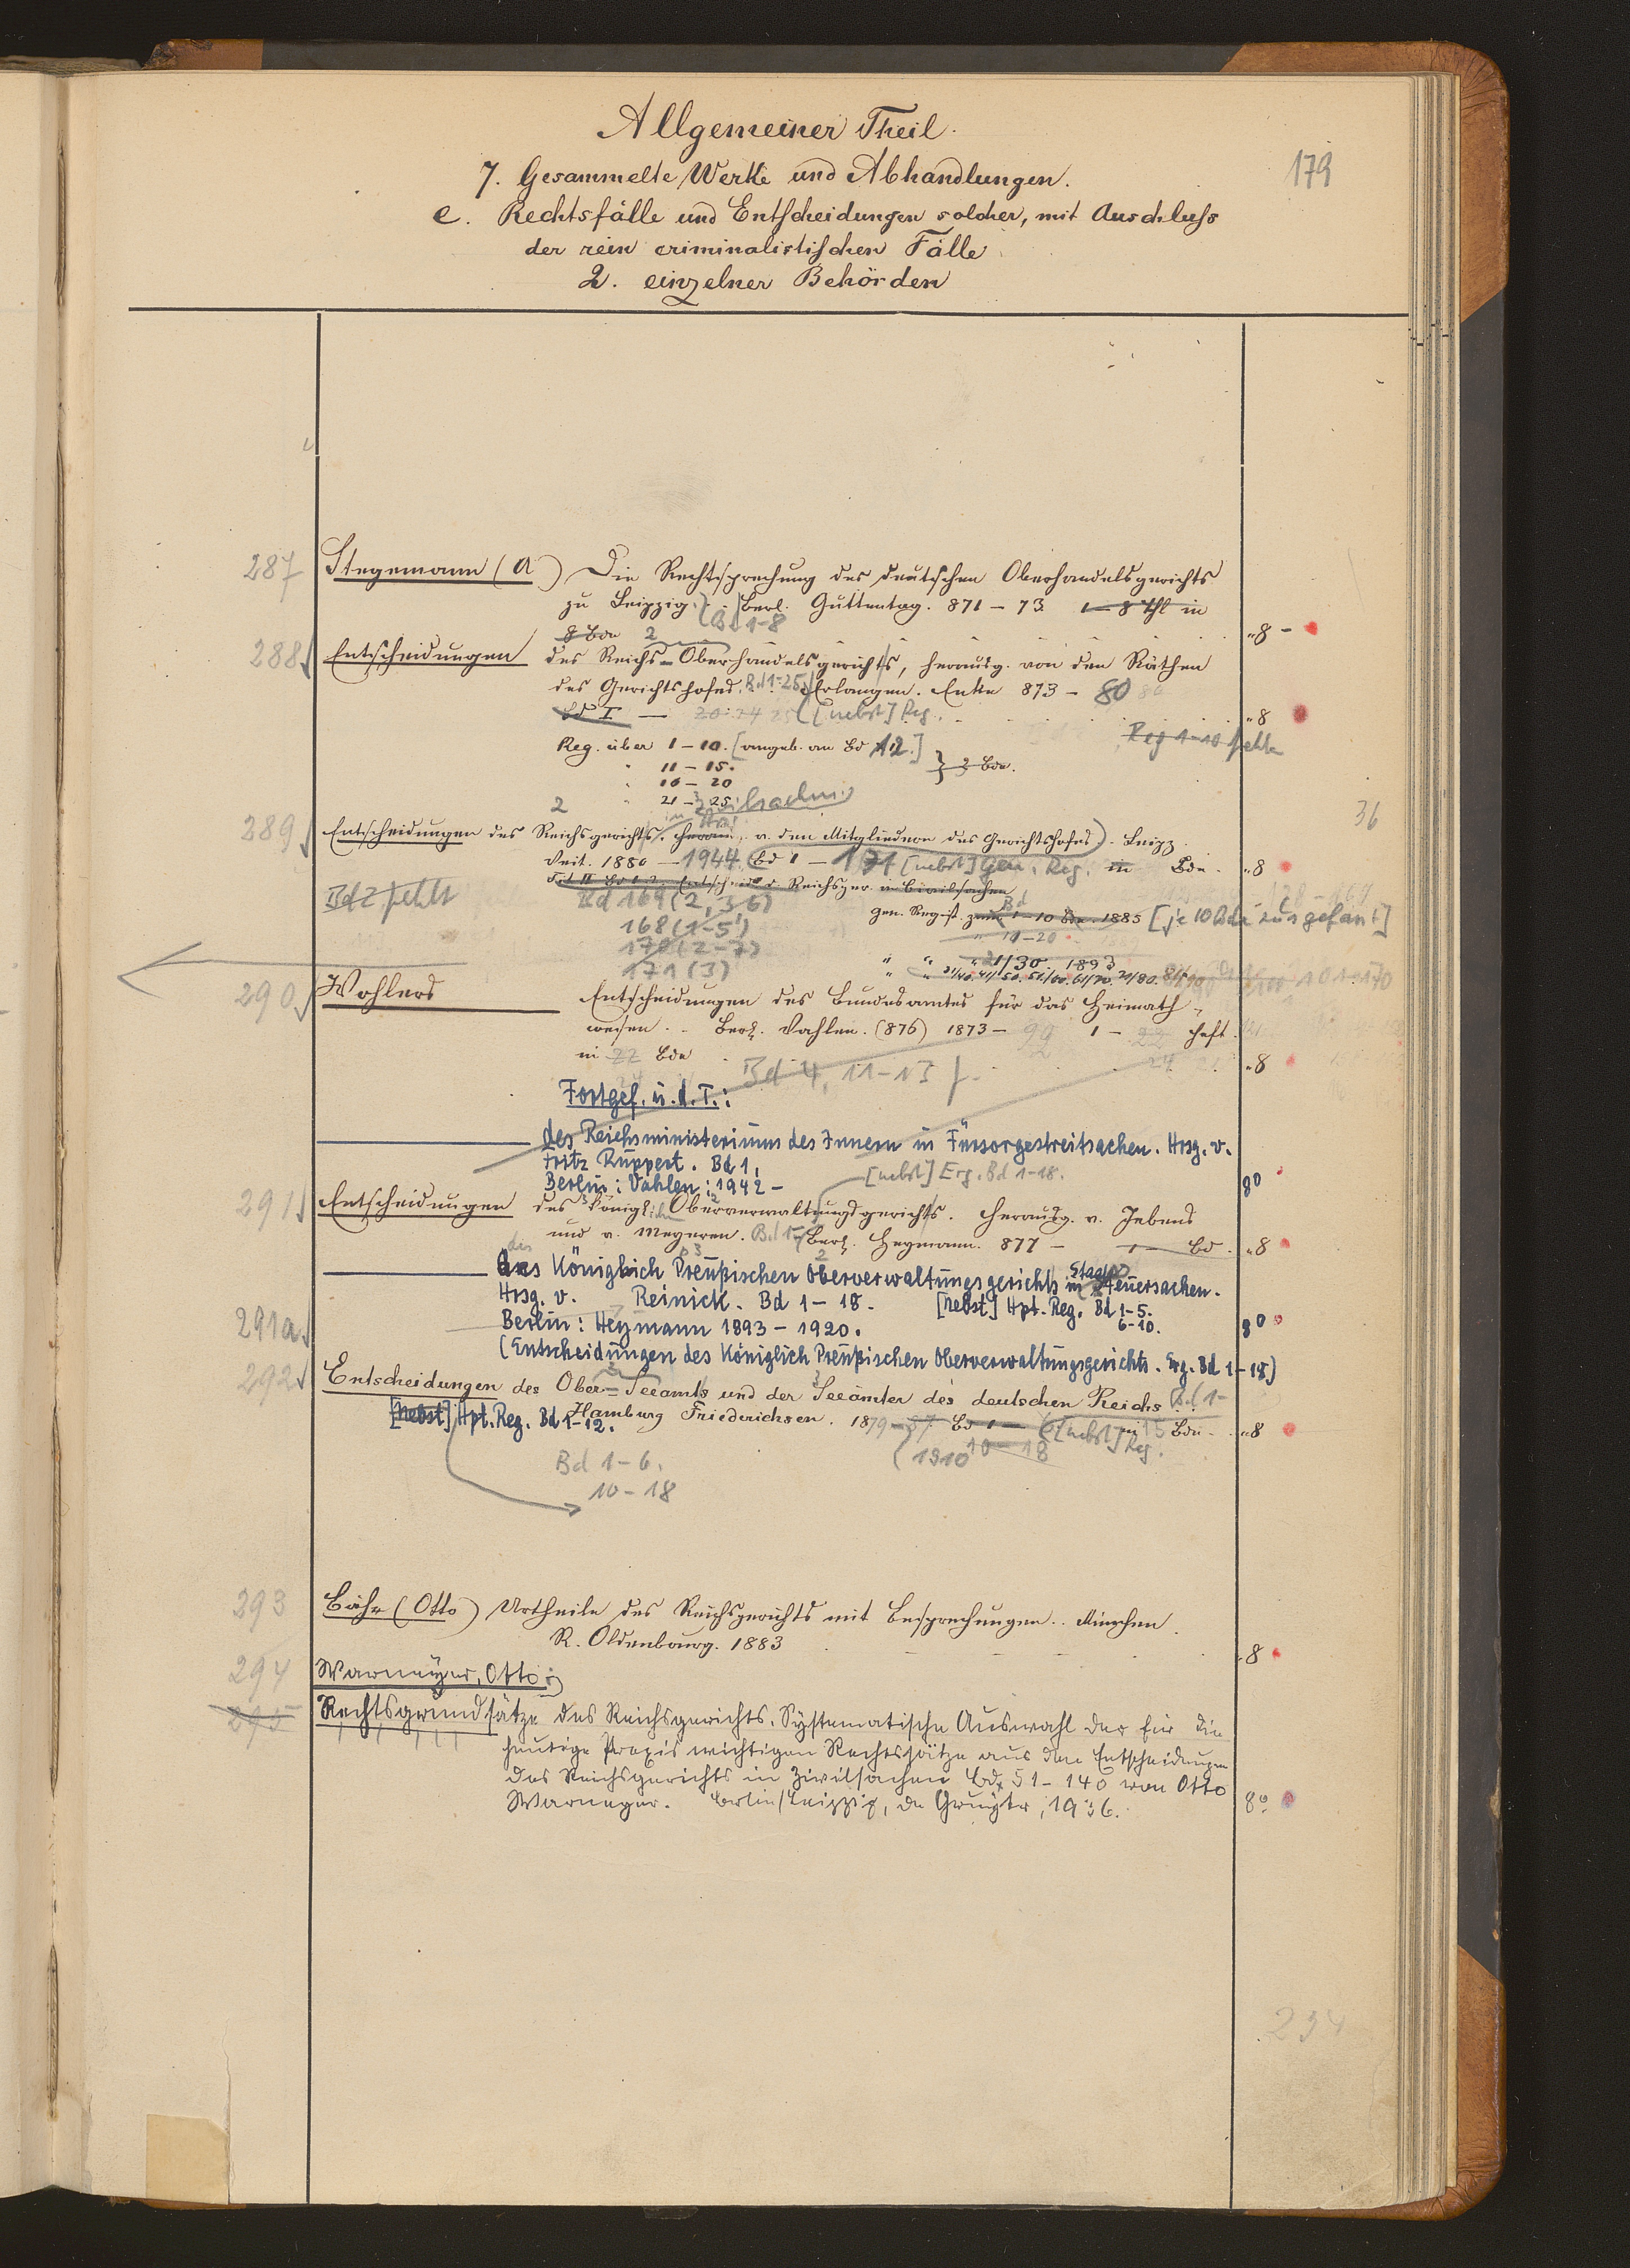 Allgemeiner Theil.
179
7. Gesammelte Werke und Abhandlungen.
e. Rechtsfälle und Entscheidungen solcher, mit Auschluss
der rein criminalistischen Fälle
2. einzelner Behörden
287 Stegemann (A) Die Rechtsprechung des deutschen Oberhandelsgerichts
zu Leipzig. Berl. Guttentag. 871-73 1-8 Thl in
8 Bde Bd 1-8 "8 -
288 Entscheidungen des Reichs-Oberhandelsgerichts, herausg. von den Räthen
des Gerichtshofes. Bd 1-25 Erlangen. Enke 873-80
Bd I - 20 24 25 [nebst] Reg. "8
Reg. über 1-10. [angeb. an Bd 12.] Reg 1-10 fehlt
" 11-15. } 3 Bde.
" 16-20
" 21-25
36
289 Entscheidungen des Reichsgerichts. Herausg. v. den Mitgliedern des Gerichtshofes. Leipz.
Veit. 1880-1944. Bd 1-171 [nebst] Gen. Reg. in Bde. "8
Entscheid. d. Reichsger. in Civilsachen
Bd 2 fehlt
Bd 169 (2, 3-6)
Gen. Regist. zum 1-10 Bde. 1885 [je 10 Bde zus gefasst]
168 (1-5)
" 11-20
170 (2-7)
" " " 21/30. 1893
171 (3)
" " 31/40. 41/50. 51/60. 61/70. 71/80. 81/90
290 Wohlers Entscheidungen des Bundesamtes für das Heimath-
wesen. Berl. Vahlen. (876) 1873-99 1-22 Heft.
in 22 Bde "8
Bd 4, 11-13 f.
Fortgef. u. d. T.:
des Reichsministeriums des Innern in Fürsorgestreitsachen. Hrsg. v.
Fritz Ruppert. Bd 1.
Berlin: Vahlen: 1942- 8°
[nebst] Erg. Bd 1-18.
291 Entscheidungen des Königl. Oberverwaltungsgerichts. Herausg. v. Jebens
und v. Meyeren. Bd 1- Berl. Heymann. 877- 1- Bd. "8
des Königlich Preußischen Oberverwaltungsgerichts in Staatssteuersachen.
Hrsg. v. Reinick. Bd 1-18. [Nebst] Hpt. Reg. Bd 1-5.
6-10.
291a Berlin: Heymann 1893-1920. 8°
(Entscheidungen des Königlich Preußischen Oberverwaltungsgerichts. Erg. Bd 1-18)
292 Entscheidungen des Ober-Seeamts und der Seeämter des deutschen Reichs Bd 1-
[Nebst] Hpt. Reg. Bd 1-12. Hamburg Friederichsen. 1879-87 Bd 1-6 [nebst] Reg. in 15 Bde. "8
(1910 10-18
Bd 1-6.
10-18
293 Bähr (Otto) Urtheile des Reichsgerichts mit Besprechungen. München.
R. Oldenbourg. 1883 8
294 Warneyer, Otto:
295 Rechtsgrundsätze des Reichsgerichts. Systematische Auswahl der für die
heutige Praxis wichtigen Rechtssätze aus den Entscheidungen
des Reichsgerichts in Zivilsachen Bd. 51-140 von Otto
Warneyer. Berlin/Leipzig, de Gruyter, 1936. 8°
234